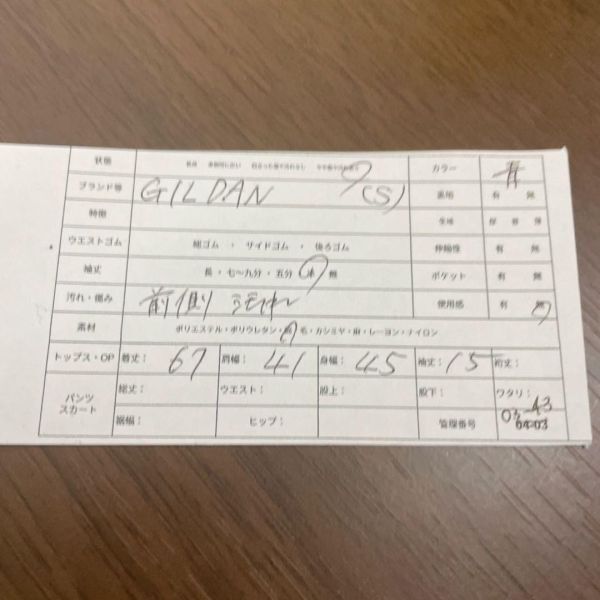 状態 良品 未使用に近い 目立った傷や汚れなし やや傷や汚れあり カラー 青
ブランド等 GILDAN (S) 裏地 有 無
特徴 生地 厚 普 薄
ウエストゴム 総ゴム ・ サイドゴム ・ 後ろゴム 伸縮性 有 無
袖丈 長・七〜九分・五分・半・無 ポケット 有 無
汚れ・傷み 前側 使用感 有 無
素材 ポリエステル・ポリウレタン・綿・毛・カシミヤ・麻・レーヨン・ナイロン
トップス・OP 着丈: 67 肩幅: 41 身幅: 45 袖丈: 15 裄丈:
パンツ スカート 総丈: ウエスト: 股上: 股下: ワタリ:
裾幅: ヒップ: 管理番号